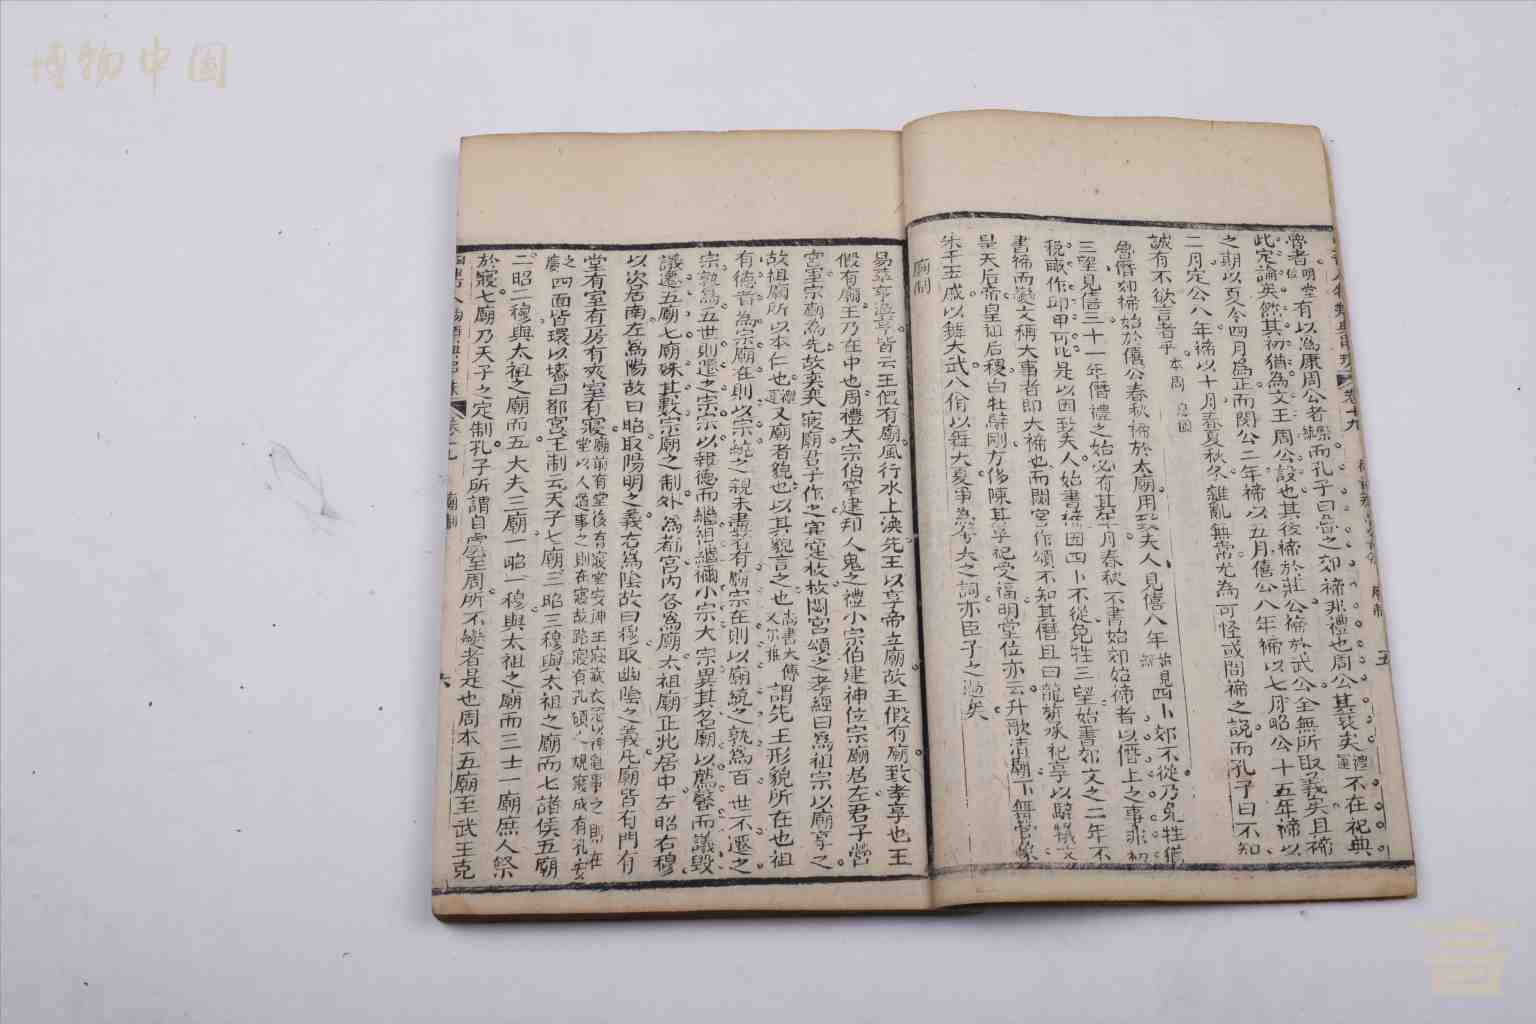 博物中国
魯者明堂位有以為康周公者祭統而孔子曰魯之郊禘非禮也周公其衰矣禮運不在祀典
此定論矣然其初猶為文王周公設也其後禘於莊公禘於武公全無所取義矣且禘
之期以夏今四月為正而閔公二年禘以五月僖公八年禘以七月昭公十五年禘以
二月定公八年禘以十月春夏秋冬雜亂無常尤為可怪或問禘之說而孔子曰不知
誠有不欲言者乎
魯僭郊禘始於僖公春秋禘於太廟用致夫人見僖八年四卜郊不從乃免牲猶
三望見僖三十一年僭禮之始必有其年月春秋不書始郊始禘者以僭上之事非初
稅畝作邱甲可比是以因致夫人始書禘因四卜不從免牲三望始書郊文之二年不
書禘而變文稱大事者即大禘也而閟宮作頌不知其僭且曰龍旂承祀享以騂犧
皇天后帝皇祖后稷白牡騂剛方侈陳其享祀受福明堂位亦云升歌清廟下管象
朱干玉戚以舞大武八佾以舞大夏爭為夸大之詞亦臣子之過矣
廟制
易萃亨渙亨皆云王假有廟風行水上渙先王以享帝立廟故王假有廟致孝享也王
假有廟王乃在中也周禮大宗伯掌建邦人鬼之禮小宗伯建神位宗廟居左君子營
宮室宗廟為先故奕奕寢廟君子作之寔寔枚枚閟宮頌之孝經曰為祖宗以廟享之
故祖廟所以本仁也禮運又廟者貌也以其貌言之也尚書大傳又爾雅謂先王形貌所在也祖
有德者為宗廟在則以宗統之親未盡者有廟宗在則以廟統之孰為百世不遷之
宗孰為五世則遷之宗宗以報德而繼祖繼禰小宗大宗異其名廟以薦馨而議毀
議遷五廟七廟殊其數宗廟之制外為都宮內各為廟太祖廟正北居中左昭右穆
以次居南左為陽故曰昭取陽明之義右為陰故曰穆取幽陰之義凡廟皆有門有
堂有室有房有夾室有寢廟前有堂後有寢堂安神主寢藏衣冠以神道事之則在堂以人道事之則在寢故路寢有孔碩
之四面皆環以墻曰都宮王制云天子七廟三昭三穆與太祖之廟而七諸侯五廟
二昭二穆與太祖之廟而五大夫三廟一昭一穆與太祖之廟而三士一廟庶人祭
於寢七廟乃天子之定制孔子所謂自虞至周所不變者是也周本五廟至武王克
廟制
六